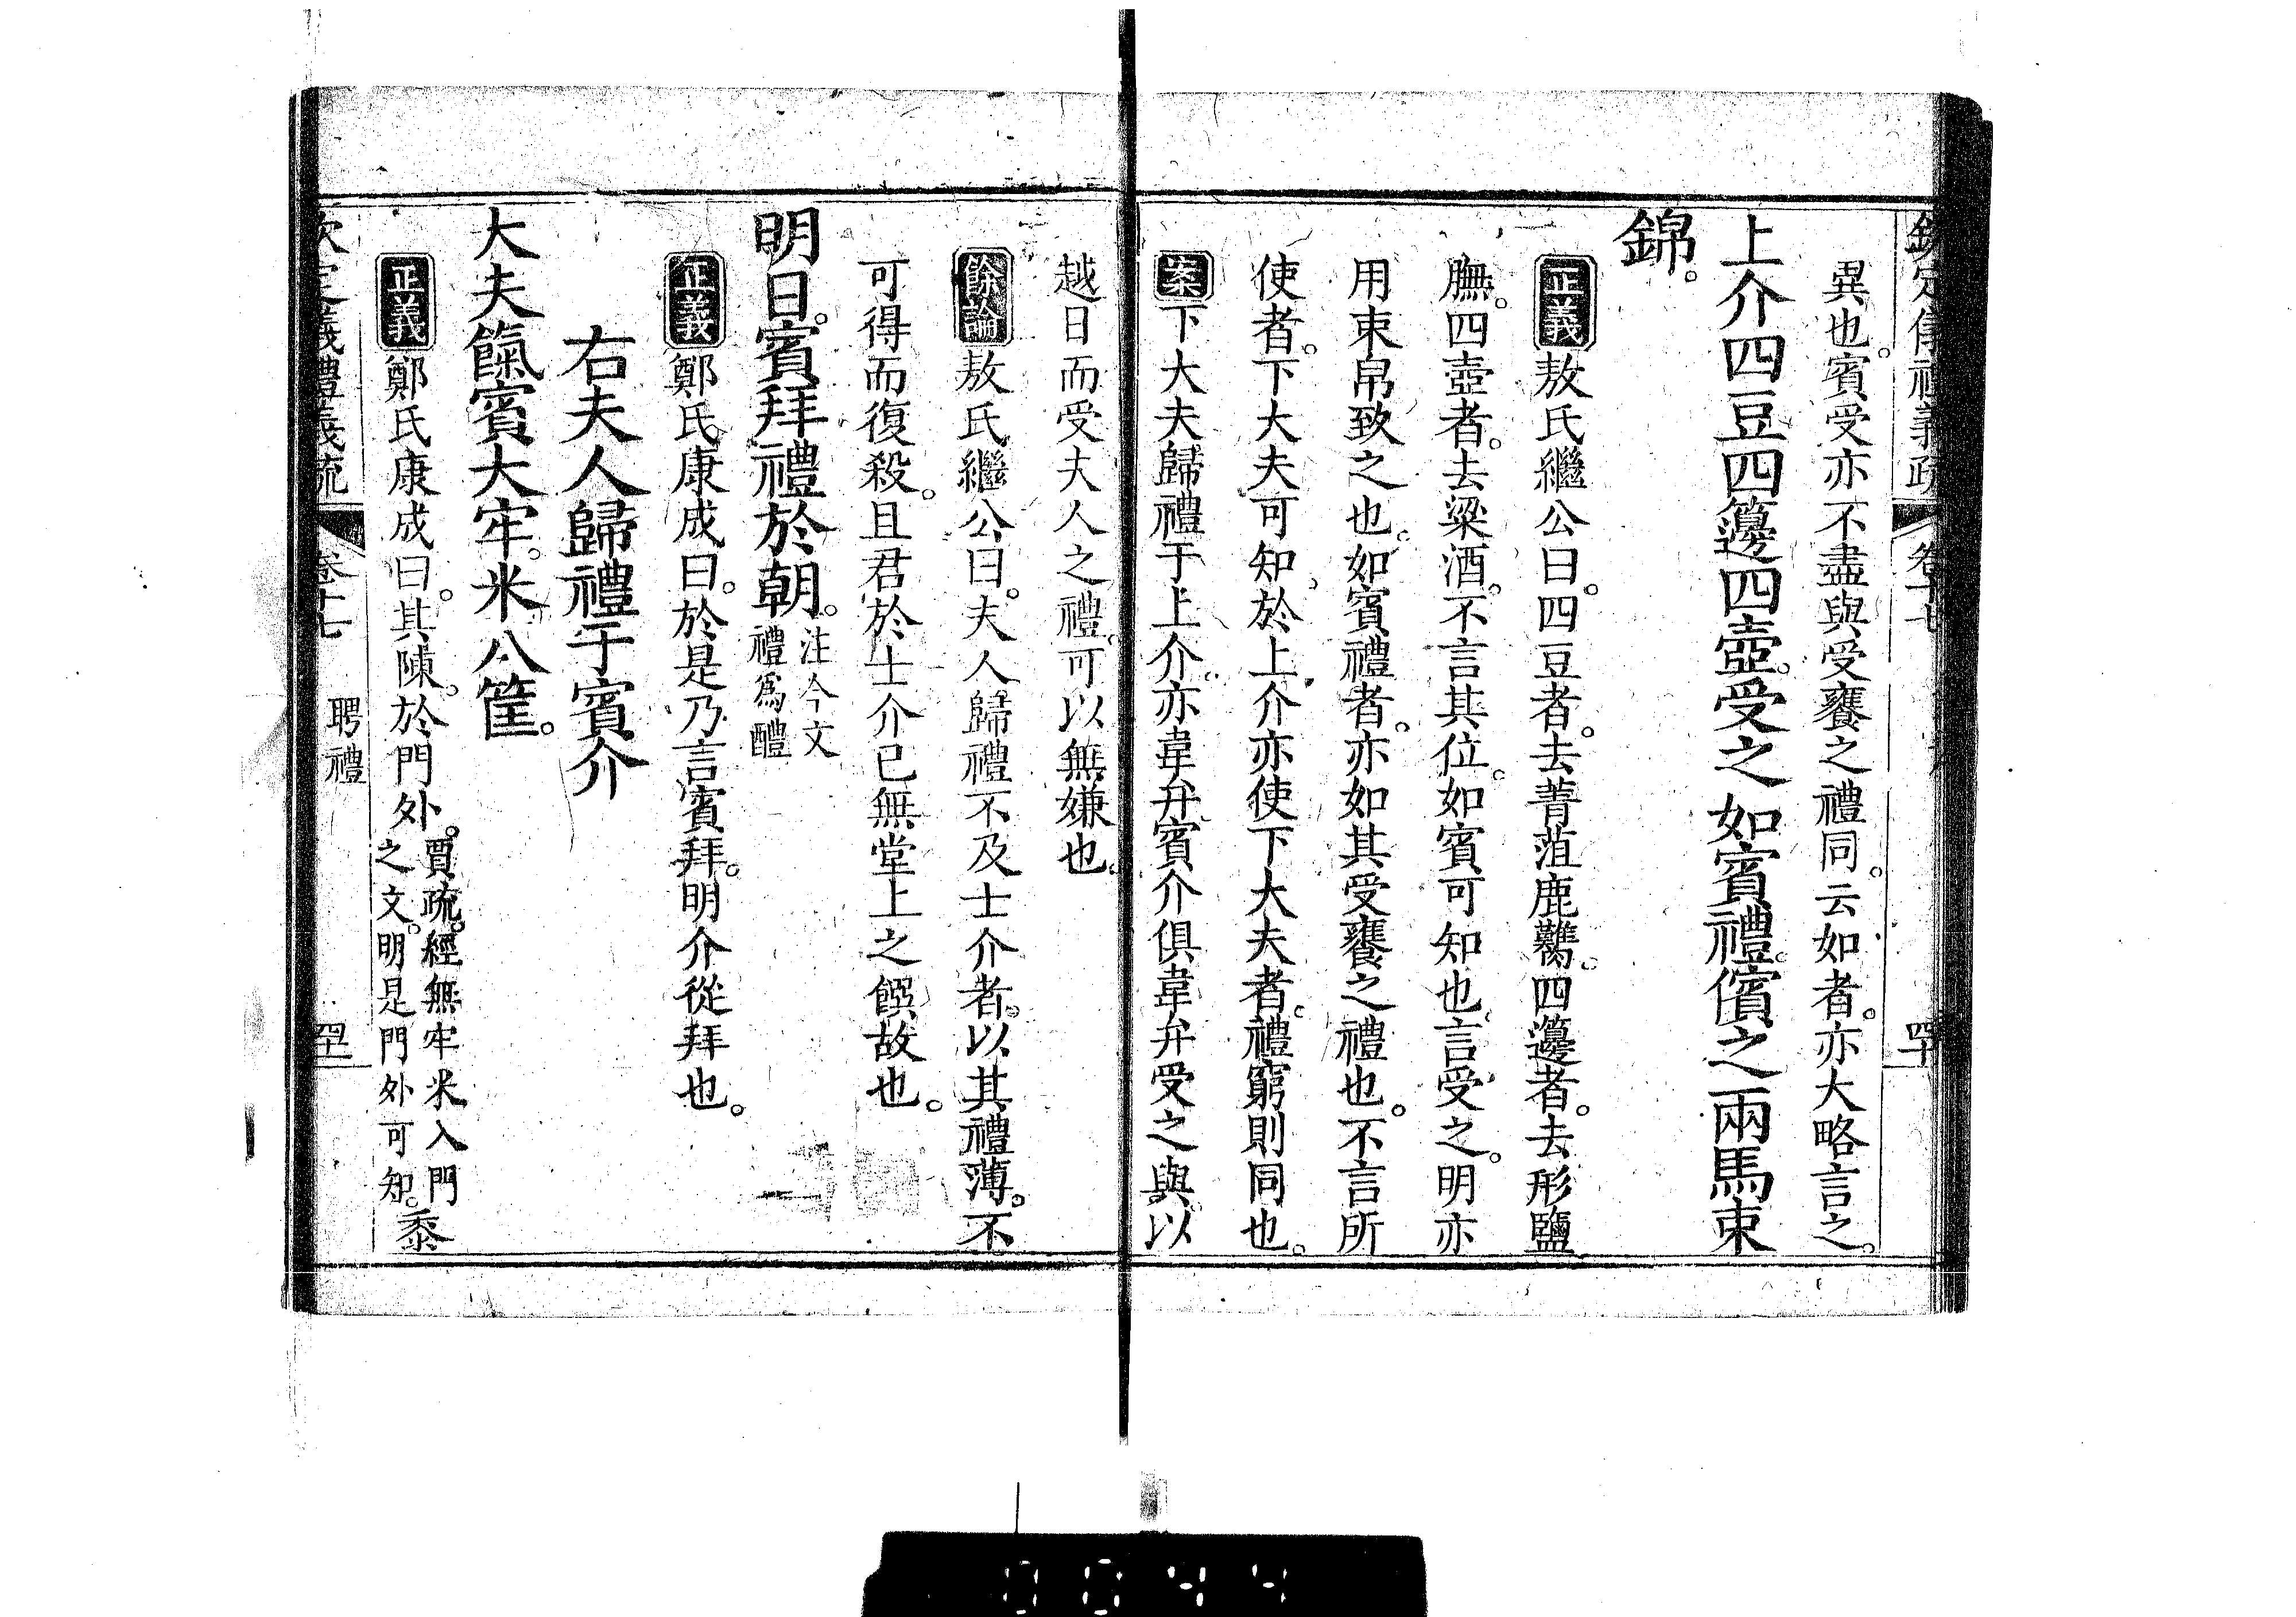 欽定儀禮義疏 卷十七 四十
異也。賓受亦不盡與受饔之禮同。云如者。亦大略言之。
上介四豆四籩四壺。受之如賓禮。儐之兩馬束
錦。
正義 敖氏繼公曰。四豆者。去菁菹鹿臡。四籩者。去形鹽
膴。四壺者。去粱酒。不言其位。如賓可知也。言受之。明亦
用束帛致之也。如賓禮者。亦如其受饔之禮也。不言所
使者。下大夫可知。於上介亦使下大夫者。禮窮則同也。
案 下大夫歸禮于上介亦韋弁賓介俱韋弁受之與以
越日而受夫人之禮。可以無嫌也。
餘論 敖氏繼公曰。夫人歸禮不及士介者。以其禮薄。不
可得而復殺。且君於士介已無堂上之饌故也。
明日。賓拜禮於朝。注今文
禮為醴
正義 鄭氏康成曰。於是乃言賓拜。明介從拜也。
右夫人歸禮于賓介
大夫餼賓大牢。米八筐。
正義 鄭氏康成曰。其陳於門外。賈疏。經無牢米入門
之文。明是門外可知。黍
欽定儀禮義疏 卷十七 聘禮 四十一